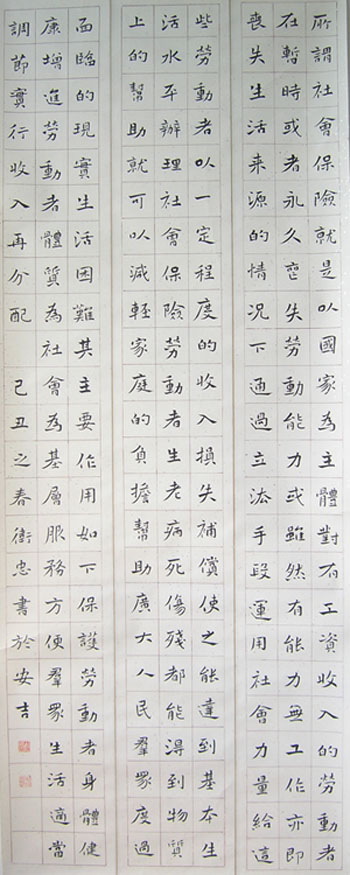 所謂社會保險就是以國家為主體對有工資收入的勞動者
在暫時或者永久喪失勞動能力或雖然有能力無工作亦即
喪失生活来源的情況下通過立法手段運用社會力量給這
些勞動者以一定程度的收入損失補償使之能達到基本生
活水平辦理社會保險勞動者生老病死傷殘都能得到物質
上的幫助就可以減輕家庭的負擔幫助廣大人民羣眾度過
面臨的現實生活困難其主要作用如下保護勞動者身體健
康增進勞動者體質為社會為基層服務方便羣眾生活適當
調節實行收入再分配 己丑之春衛忠書於安吉